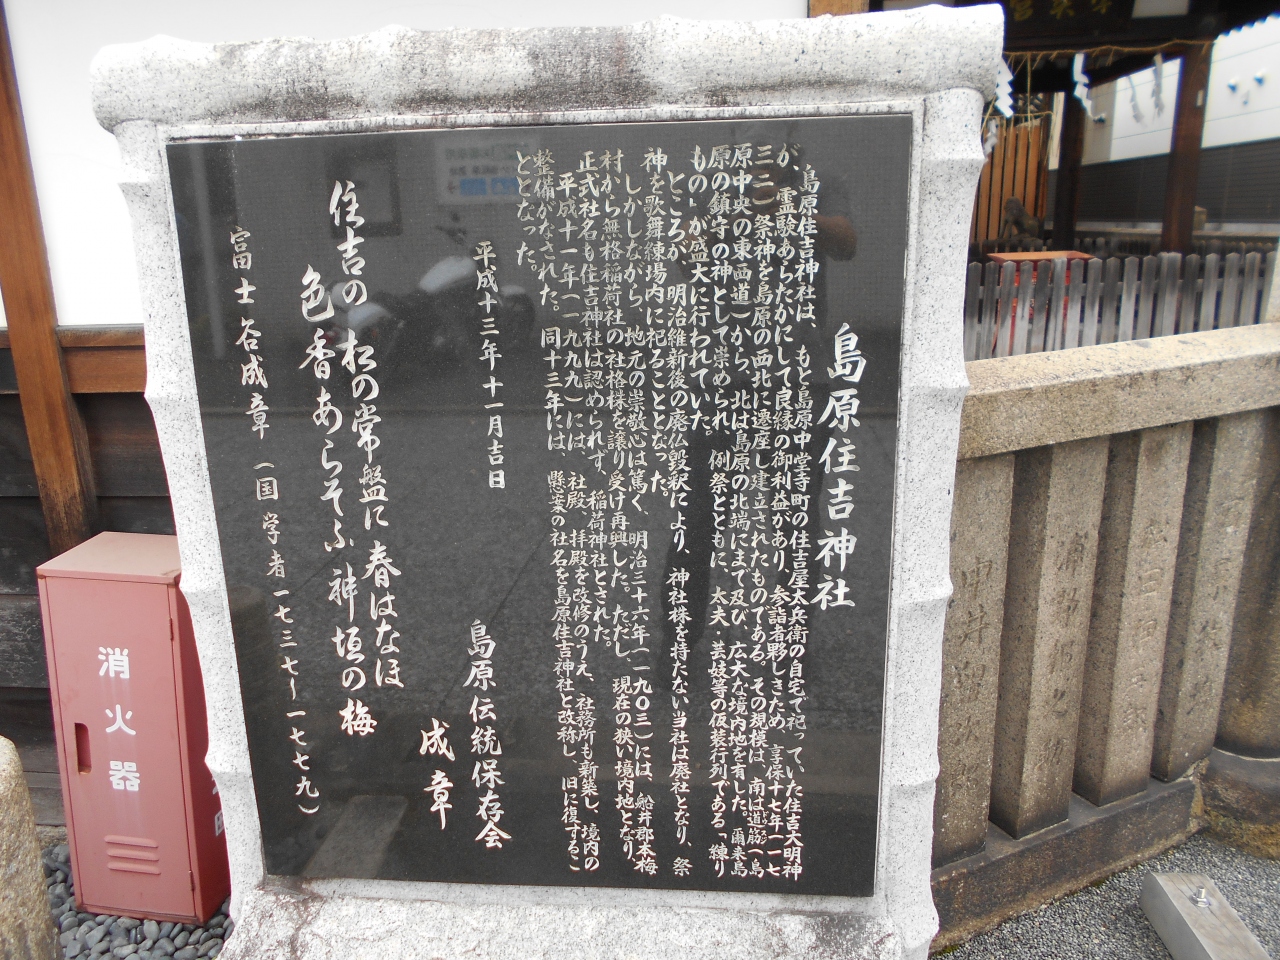 島原住吉神社
島原住吉神社は、もと島原中堂寺町の住吉屋太兵衛の自宅で祀っていた住吉大明神
が、霊験あらたかにして良縁の御利益があり、参詣者夥しきため、享保十七年(一七
三二)祭神を島原の西北に遷座し建立されたものである。その規模は、南は道筋(島
原中央の東西道)から、北は島原の北端にまで及び、広大な境内地を有した。爾来島
原の鎮守の神として崇められ、例祭とともに、太夫・芸妓等の仮装行列である「練り
もの」が盛大に行われていた。
ところが、明治維新後の廃仏毀釈により、神社株を持たない当社は廃社となり、祭
神を歌舞練場内に祀ることとなった。
しかしながら、地元の崇敬心は篤く、明治三十六年(一九〇三)には、船井郡本梅
村から無格稲荷社の社格株を譲り受け再興した。ただし、現在の狭い境内地となり、
正式社名も住吉神社は認められず、稲荷神社とされた。
平成十一年(一九九九)には、社殿、拝殿を改修のうえ、社務所も新築し、境内の
整備がなされた。同十三年には、懸案の社名を島原住吉神社と改称し、旧に復するこ
ととなった。
平成十三年十一月吉日
島原伝統保存会
成章
住吉の 松の常盤に 春はなほ
色香あらそふ 神垣の梅
富士谷成章 (国学者一七三七~一七七九)
消火器